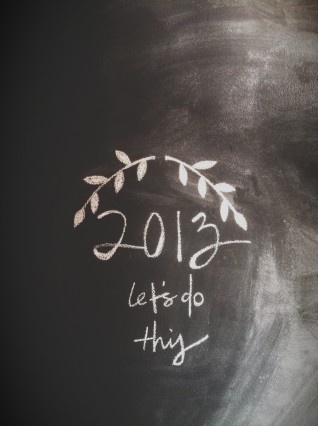 2013
let's do
this